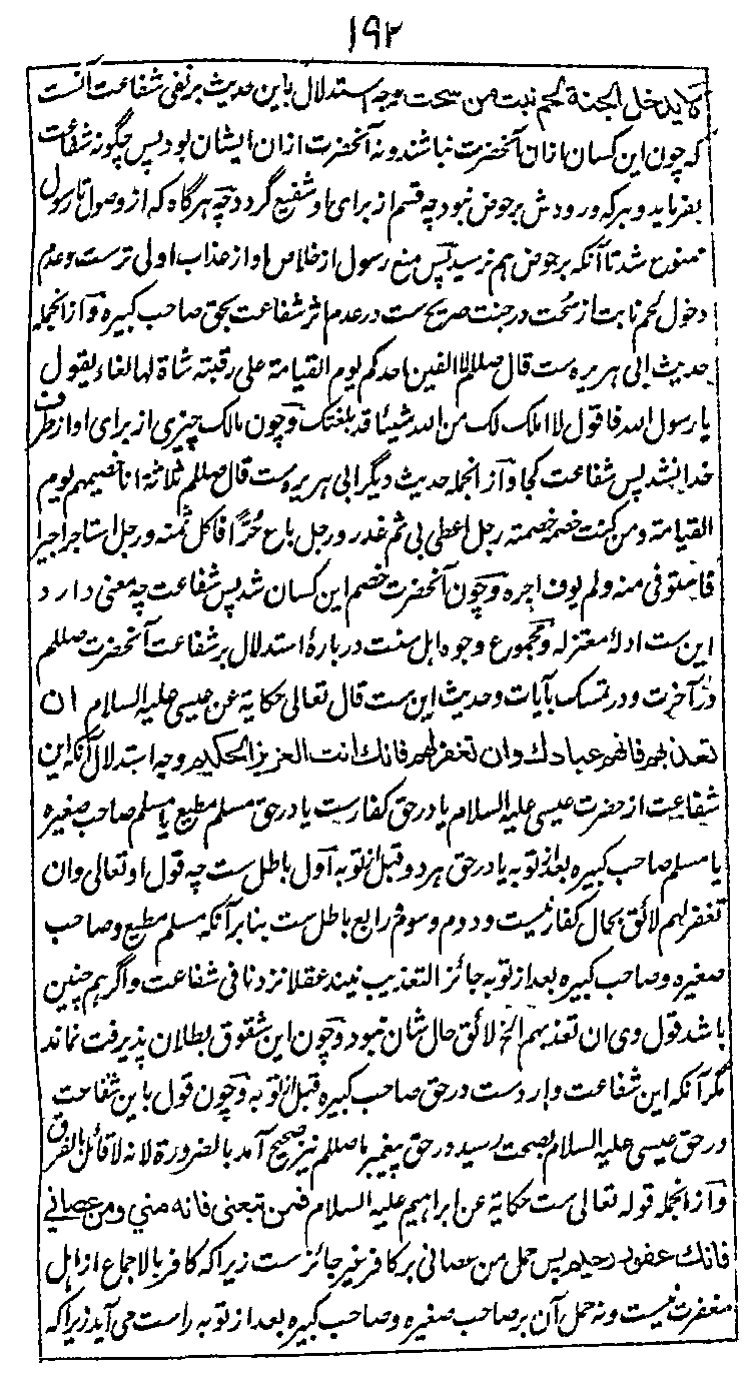 ۱۹۲
لا يدخل الجنة لحم نبت من سحت وجه استدلال باین حدیث بر نفی شفاعت آنست
که چون این کسان ازان آنحضرت نباشند ونه آنحضرت ازان ایشان بود پس چگونه شفاعت
بفرماید و هرکه ورودش بر حوض نبود چه قسم از برای او شفیع گردد چه هرگاه که از وصول تا رسول
ممنوع شد تا آنکه بر حوض هم نرسید پس منع رسول از خلاص او از عذاب اولی ترست وعدم
دخول لحم نابت از سحت در جنت صریح ست در عدم اثر شفاعت بحق صاحب کبیره وازانجمله
حدیث ابی هریره ست قال صللم لا الفین احدکم یوم القیامة علی رقبته شاة لها ثغاء یقول
یا رسول الله فاقول لا املک لک من الله شیئا قد بلغتک وچون مالک چیزی از برای او از طرف
خدا نشد پس شفاعت کجا وازانجمله حدیث دیگر ابی هریره ست قال صللم ثلاثة انا خصیمهم یوم
القیامة ومن کنت خصمه خصمته رجل اعطی بی ثم غدر ورجل باع حُرًّا فاکل ثمنه ورجل استاجر اجیرا
فاستوفی منه ولم یوف اجره وچون آنحضرت خصم این کسان شد پس شفاعت چه معنی دارد
این ست ادلهٔ معتزله ومجموع وجوه اهل سنت دربارهٔ استدلال بر شفاعت آنحضرت صللم
در آخرت و در تمسک بآیات وحدیث این ست قال تعالی حکایة عن عیسی علیه السلام ان
تعذبهم فانهم عبادك وان تغفر لهم فانك انت العزيز الحكيم وجه استدلال آنکه این
شفاعت از حضرت عیسی علیه السلام یا در حق کفارست یا در حق مسلم مطیع یا مسلم صاحب صغیره
یا مسلم صاحب کبیره بعد از توبه یا در حق هر دو قبل از توبه اول باطل ست چه قول او تعالی وان
تغفر لهم لائق بحال کفار نیست ودوم وسوم و رابع باطل ست بنابر آنکه مسلم مطیع وصاحب
صغیره وصاحب کبیره بعد از توبه جائز التعذیب نیند عقلا نزد نافی شفاعت واگر همچنین
باشد قول وی ان تعذبهم الخ لائق حال شان نبود وچون این شقوق بطلان پذیرفت نماند
مگر آنکه این شفاعت وارد ست در حق صاحب کبیره قبل از توبه وچون قول باین شفاعت
در حق عیسی علیه السلام بصحت رسید در حق پیغمبر ما صللم نیز صحیح آمد بالضرورة لانه لا قائل بالفرق
وازانجمله قوله تعالی ست حکایة عن ابراهیم علیه السلام فمن تبعنی فانه منی ومن عصانی
فانك غفور رحيم پس حمل من عصانی بر کافر غیر جائز ست زیرا که کافر بالاجماع از اهل
مغفرت نیست ونه حمل آن بر صاحب صغیره وصاحب کبیره بعد از توبه راست می آید زیرا که